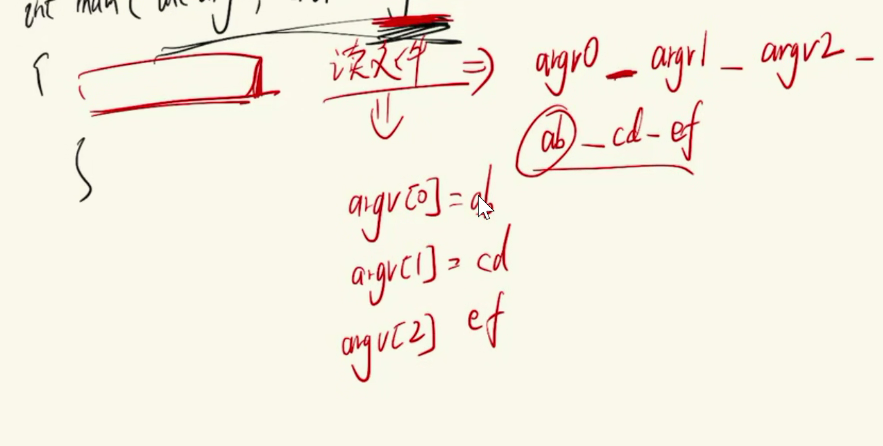 int main( int arg,
{
读文件 ⇒ argv0 _ argv1 _ argv2 _
ab _ cd - ef
}
argv[0] = ab
argv[1] = cd
argv[2] ef